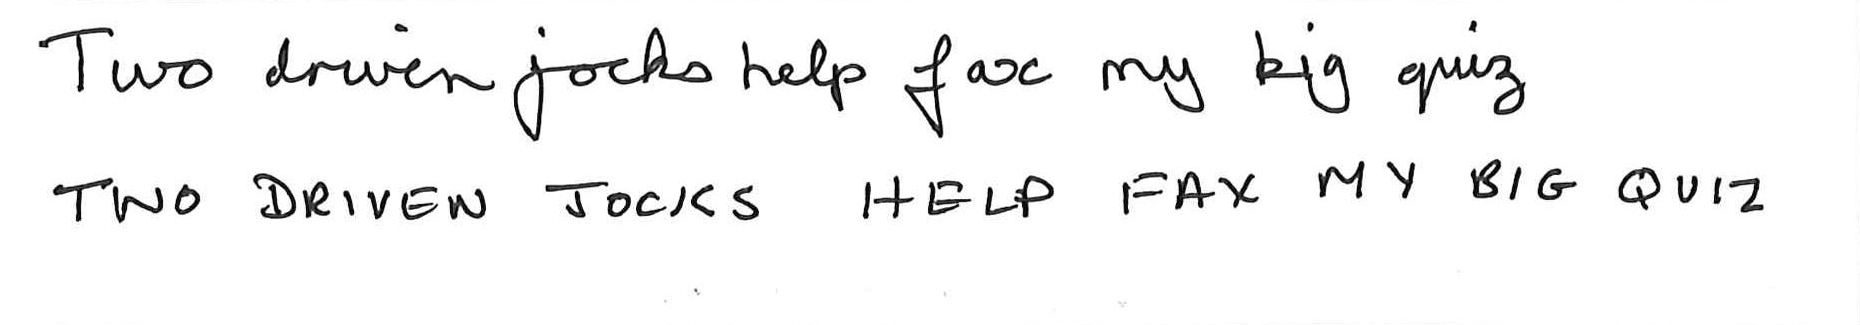 Two driven jocks help fax my big quiz
TWO DRIVEN JOCKS HELP FAX MY BIG QUIZ